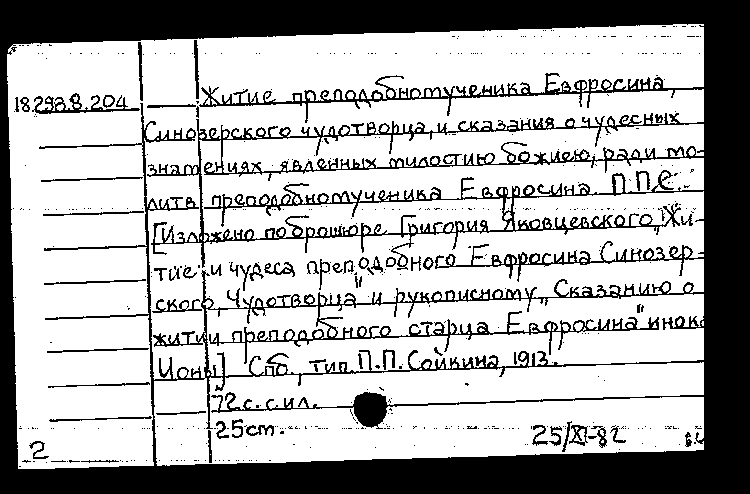 18.293.8.204 Житие преподобномученика Евфросина,
Синозерского чудотворца, и сказания о чудесных
знамениях, явленных милостию божиею, ради мо-
литв преподобномученика Евфросина. П.П.С.
[Изложено по брошюре Григория Яковцевского „Жи-
тие и чудеса преподобного Евфросина Синозер-
ского, Чудотворца" и рукописному „Сказанию о
житии преподобного старца Евфросина" инока
Ионы] Спб., тип. П.П. Сойкина, 1913.
72 с. с ил.
25 cm. 25/XI-82
2